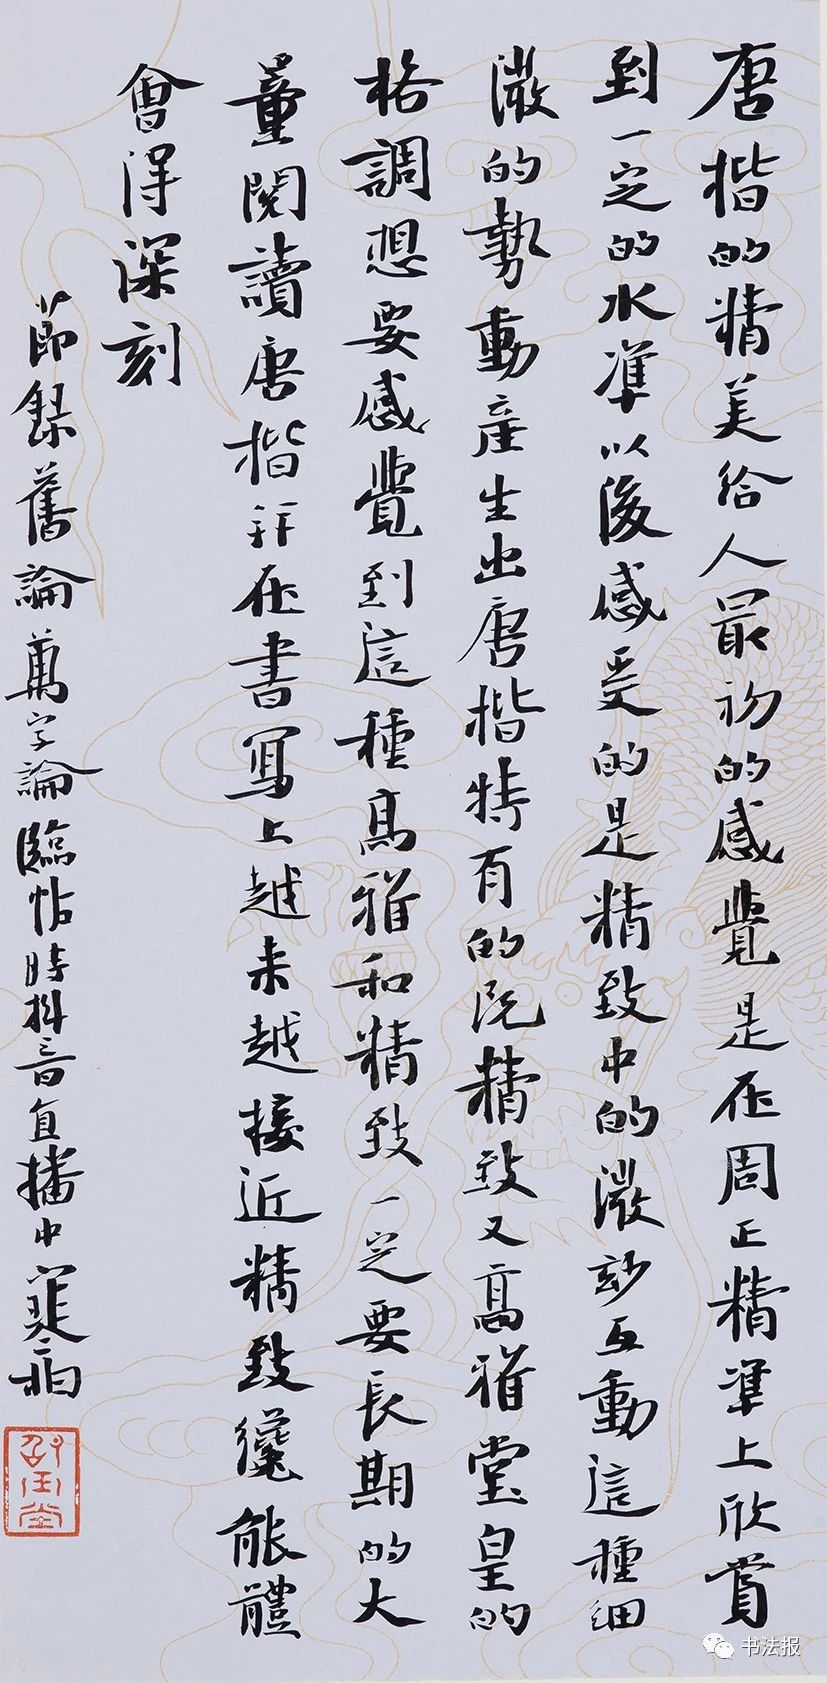 唐楷的精美給人最初的感覺是在周正精準上欣賞
到一定的水準以後感受的是精致中的微妙互動這種細
微的勢動產生出唐楷特有的既精致又高雅堂皇的
格調想要感覺到這種高雅和精致一定要長期的大
量閱讀唐楷並在書寫上越来越接近精致纔能體
會得深刻
節錄舊論萬字論臨帖時抖音直播中
书法报